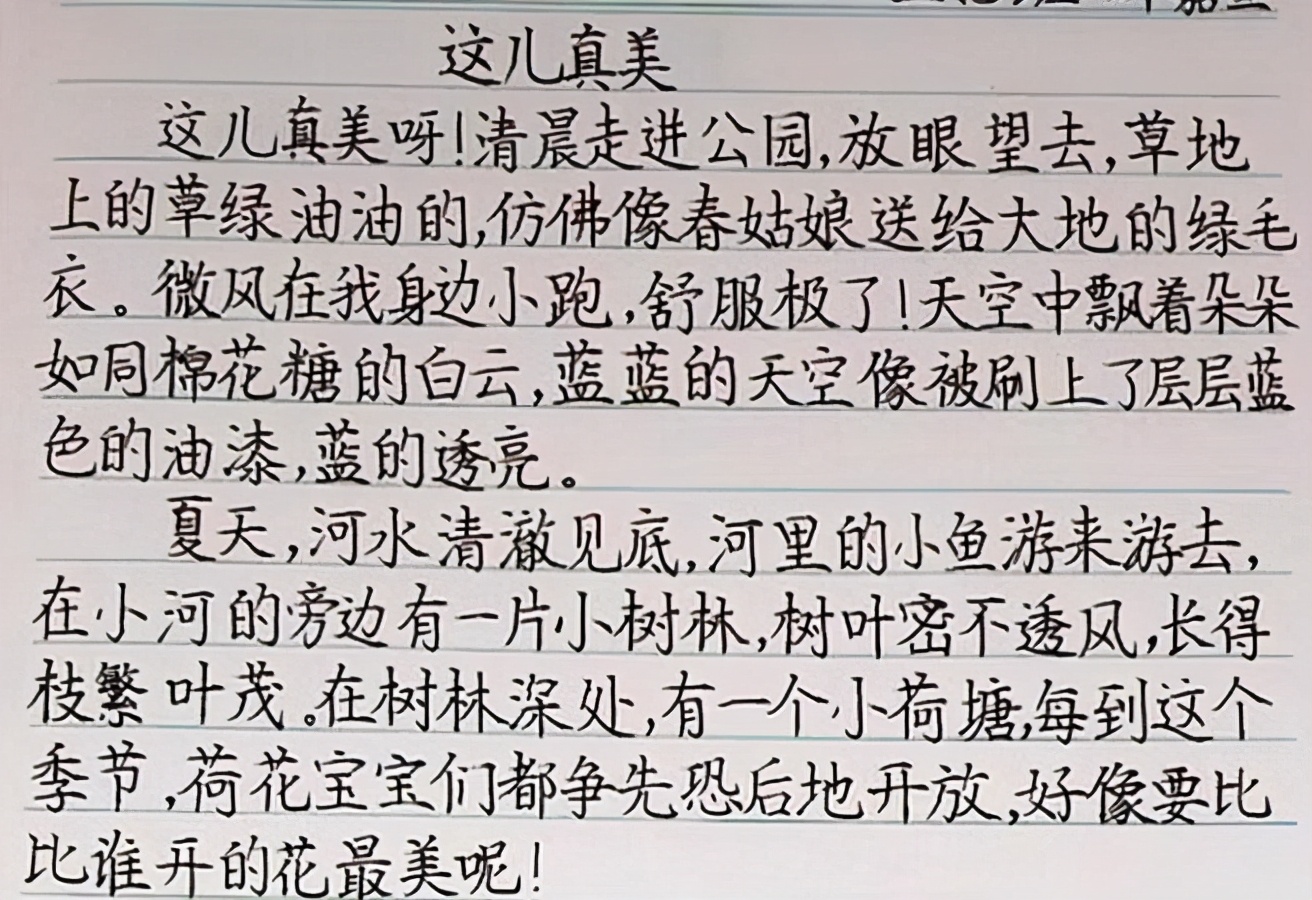 这儿真美
这儿真美呀!清晨走进公园,放眼望去,草地
上的草绿油油的,仿佛像春姑娘送给大地的绿毛
衣。微风在我身边小跑,舒服极了!天空中飘着朵朵
如同棉花糖的白云,蓝蓝的天空像被刷上了层层蓝
色的油漆,蓝的透亮。
夏天,河水清澈见底,河里的小鱼游来游去,
在小河的旁边有一片小树林,树叶密不透风,长得
枝繁叶茂。在树林深处,有一个小荷塘,每到这个
季节,荷花宝宝们都争先恐后地开放,好像要比
比谁开的花最美呢!